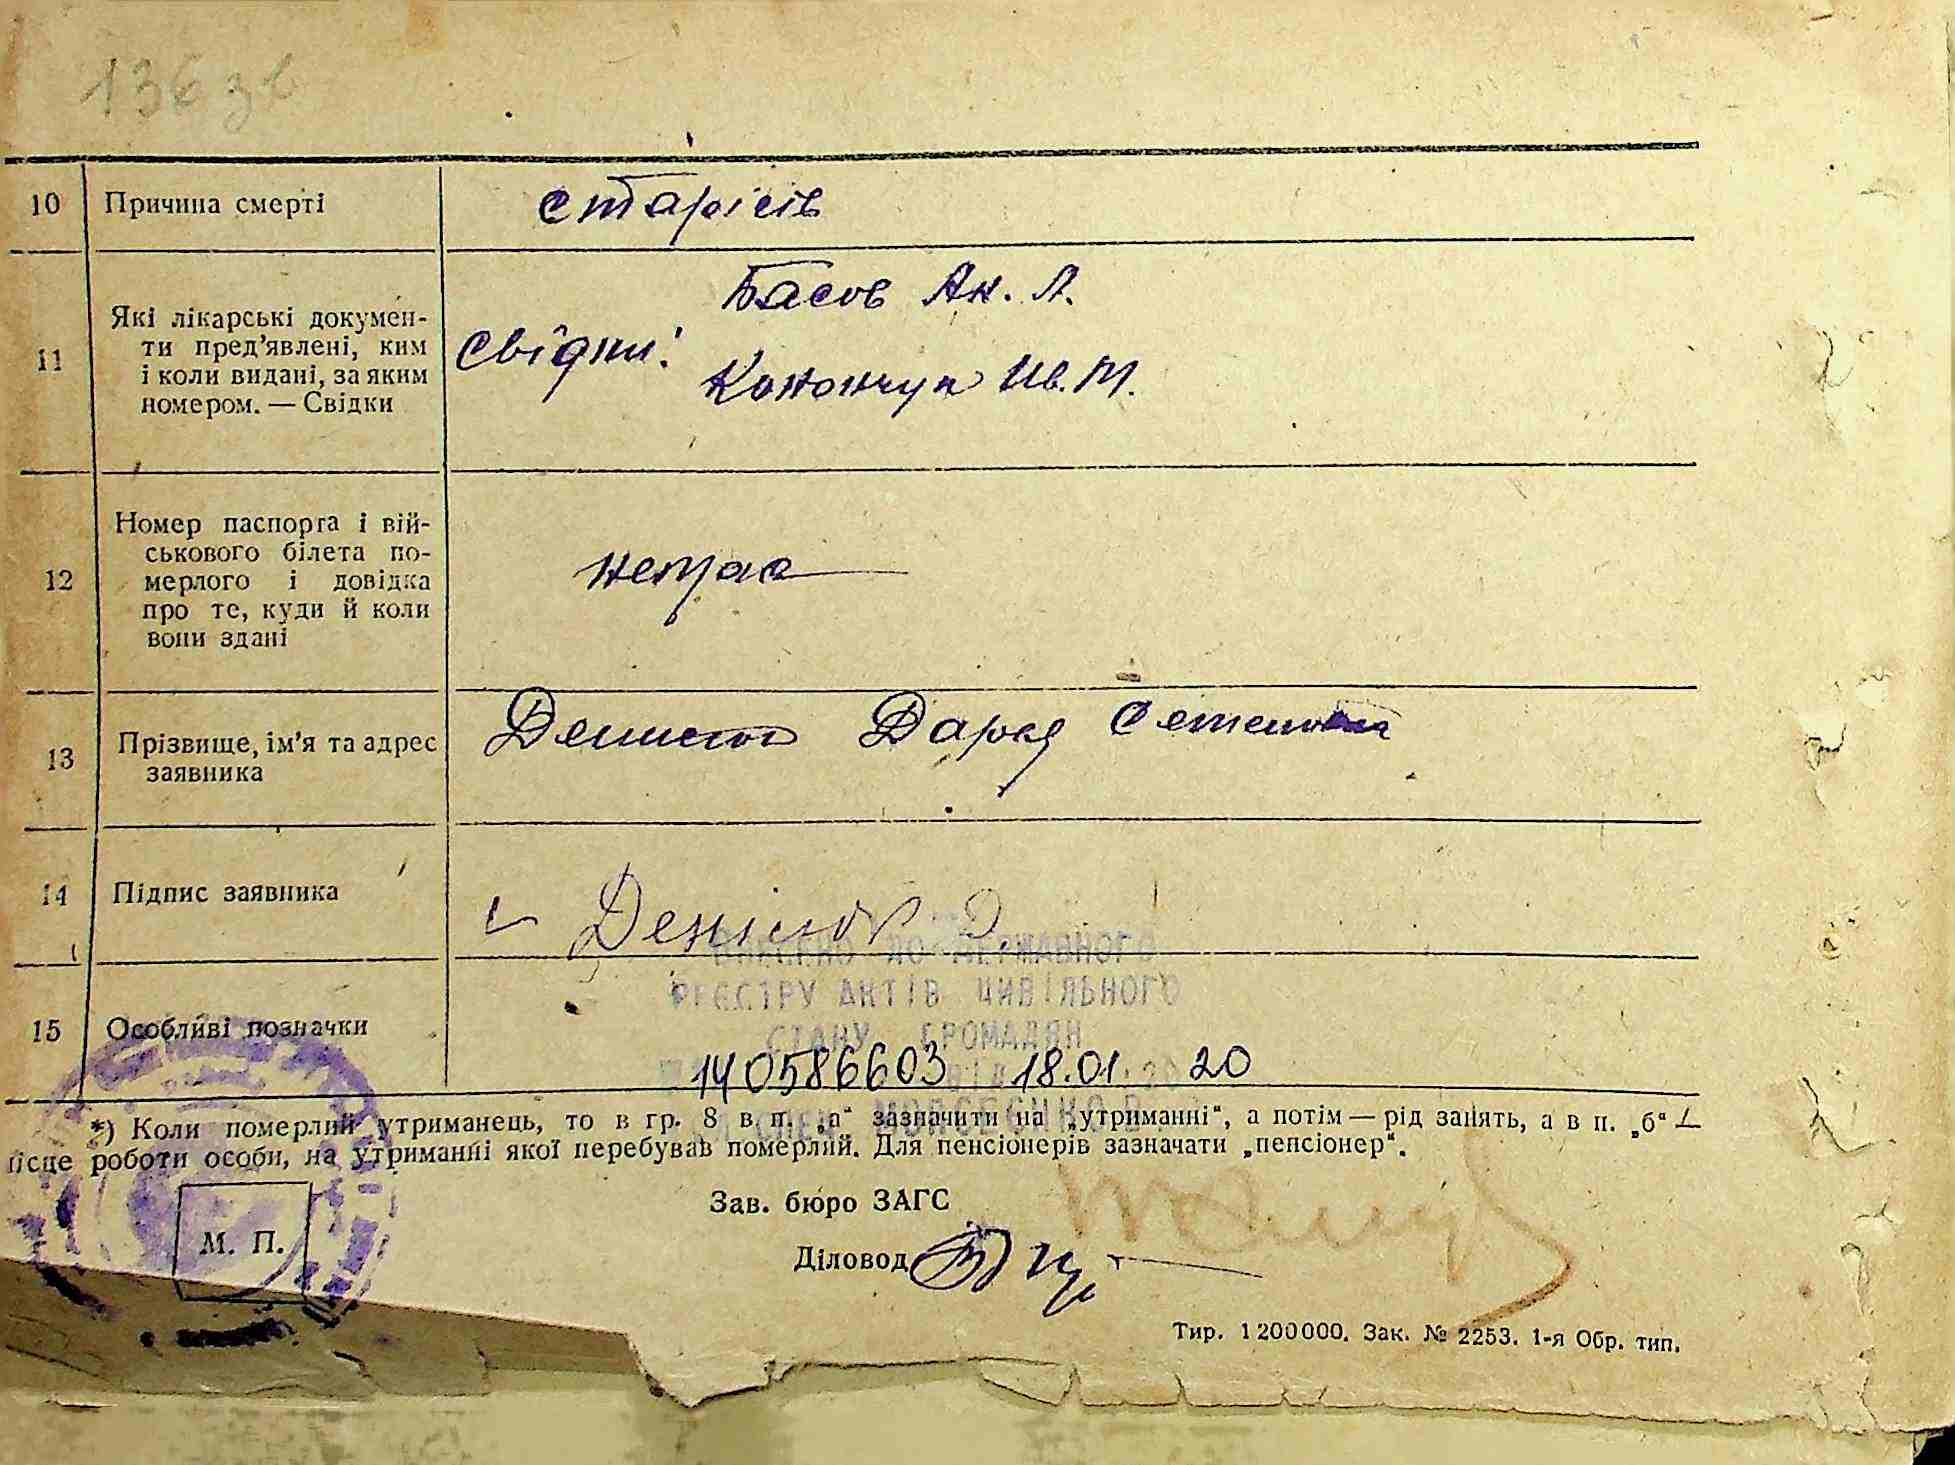 136 зв
10 Причина смерті старість
11 Які лікарські докумен-
ти пред'явлені, ким
і коли видані, за яким
номером. — Свідки
Басов Ак. Л.
Свідки:
Конончук Ив. М.
12 Номер паспорта і вій-
ськового білета по-
мерлого і довідка
про те, куди й коли
вони здані
немає
13 Прізвище, ім'я та адрес
заявника
Денисюк Дария Семеновна
14 Підпис заявника Денисюк Д.
ВНЕСЕНО ДО ДЕРЖАВНОГО
РЕЄСТРУ АКТІВ ЦИВІЛЬНОГО
СТАНУ ГРОМАДЯН
15 Особливі позначки
140586603 18.01. 20
*) Коли померлий утриманець, то в гр. 8 в п. „а“ зазначити на „утриманні“, а потім — рід занять, а в п. „б“ —
місце роботи особи, на утриманні якої перебував померлий. Для пенсіонерів зазначати „пенсіонер“.
Зав. бюро ЗАГС
М. П.
Діловод
Тир. 1200000. Зак. № 2253. 1-я Обр. тип.